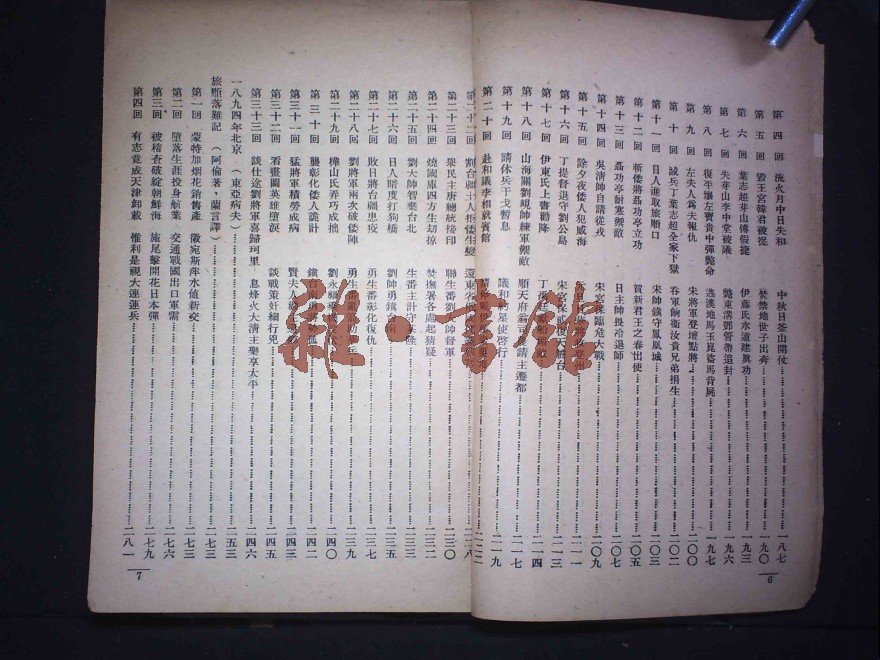 第四回 流火月中日失和 中秋日釜山開仗 一八七
第五回 毀王宮韓君被捉 焚禁地世子出奔 一九〇
第六回 葉志超牙山傳假捷 伊藤氏水道建眞功 一九三
第七回 失牙山李中堂被議 豔東溝鄧管帶追封 一九六
第八回 復平壤左寶貴中彈斃命 逃漢地馬玉崑裔馬背屍 一九七
第九回 左夫人爲夫報仇 宋將軍登壇點將 二〇〇
第十回 誠兵丁葉志超全家下獄 吞軍餉衞汝貴兄弟捐生 二〇二
第十一回 日人進取旅順口 宋帥鎮守鳳凰城 二〇三
第十二回 斬倭將聶功亭立功 賀新君王之春出使 二〇五
第十三回 聶功亭耐寒禦敵 日主帥畏冷退師 二〇七
第十四回 吳清帥自請從戎 宋宮保臨危大戰 二〇九
第十五回 除夕夜倭人犯威海 二一一
第十六回 丁提督退守劉公島 宋宮保 二一三
第十七回 伊東氏上書勸降 丁 二一四
第十八回 山海關劉峴帥練軍禦敵 順天府翁 請主遷都 二一七
第十九回 請休兵干戈暫息 議和 星使啓行 二一九
第二十回 赴和議李相就賓館
第二十二回 割台疆土人拒倭生變 遼東
第二十三回 舉民主唐總統接印 聯生番劉帥督軍 二三〇
第二十四回 燒國庫四方生劫掠 焚撫署各處起猜疑 二三二
第二十五回 劉大帥智襲台北 生番主計守基隆 二三三
第二十六回 日人暗度打狗橋 劉帥勇鎮 二三五
第二十七回 敗日將台疆患疫 勇生番彰化復仇 二三七
第二十八回 劉將軍兩次破倭陣 勇生番 二三九
第二十九回 樺山氏弄巧成拙 劉永福 二四〇
第三十回 襲彰化倭人詭計 鎮台南 二四二
第三十一回 猛將軍積勞成病 賢夫人 二四三
第三十二回 看畫圖英雄墮淚 談戰策奸細行兇 二四五
第三十三回 談仕途劉將軍喜歸珂里 息烽火大清主樂享太平 二四六
一八九四年北京（東亞病夫） 二五三
旅順落難記（阿倫著，蘭言譯） 二六三
第一回 蒙特加烟花銷售產 徽宛斯萍水値新交 二七三
第二回 墮落生涯投身航業 交通戰國出口軍需 二七六
第三回 被稽查破綻朝鮮海 施尾擊開花日本彈 二七九
第四回 有志竟成天津卸載 惟利是視大連運兵 二八一
6
7
雜·書館